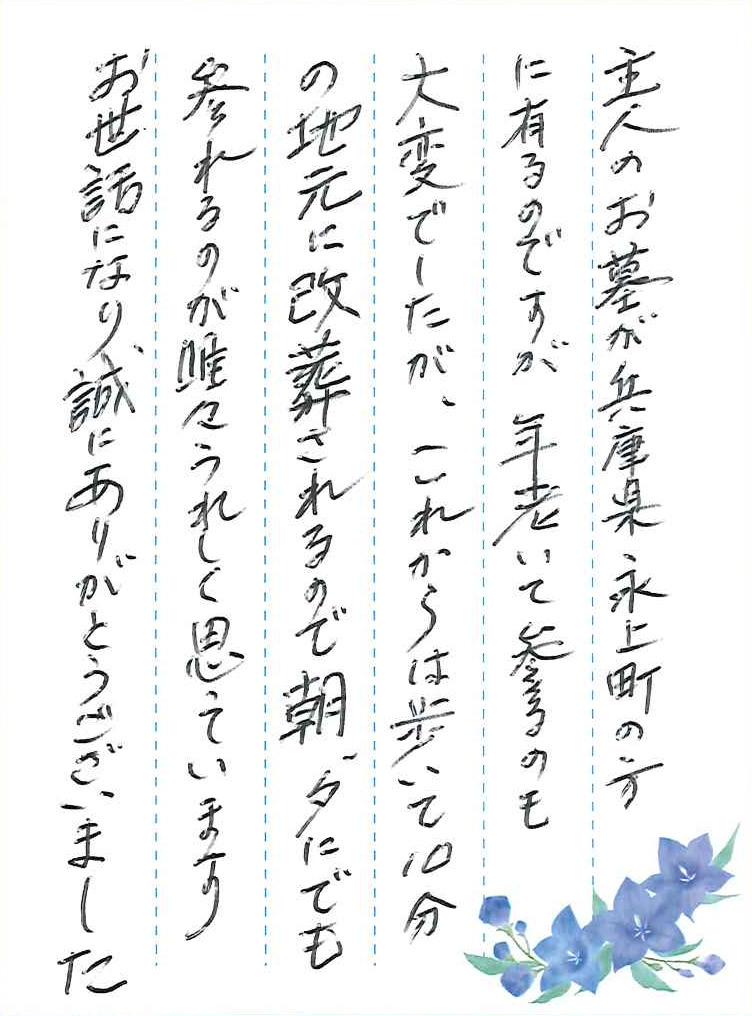 主人のお墓が兵庫県氷上町の方
に有るのですが年老いて参るのも
大変でしたが、これからは歩いて10分
の地元に改葬されるので朝、夕にでも
参れるのが唯々うれしく思っています
お世話になり、誠にありがとうございました